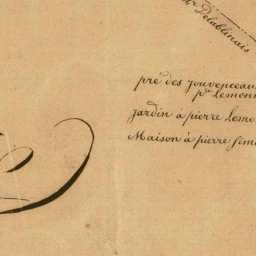 Delablinais
pré des jouvenceau
pre lemon
jardin à pierre leme
Maison à pierre sim